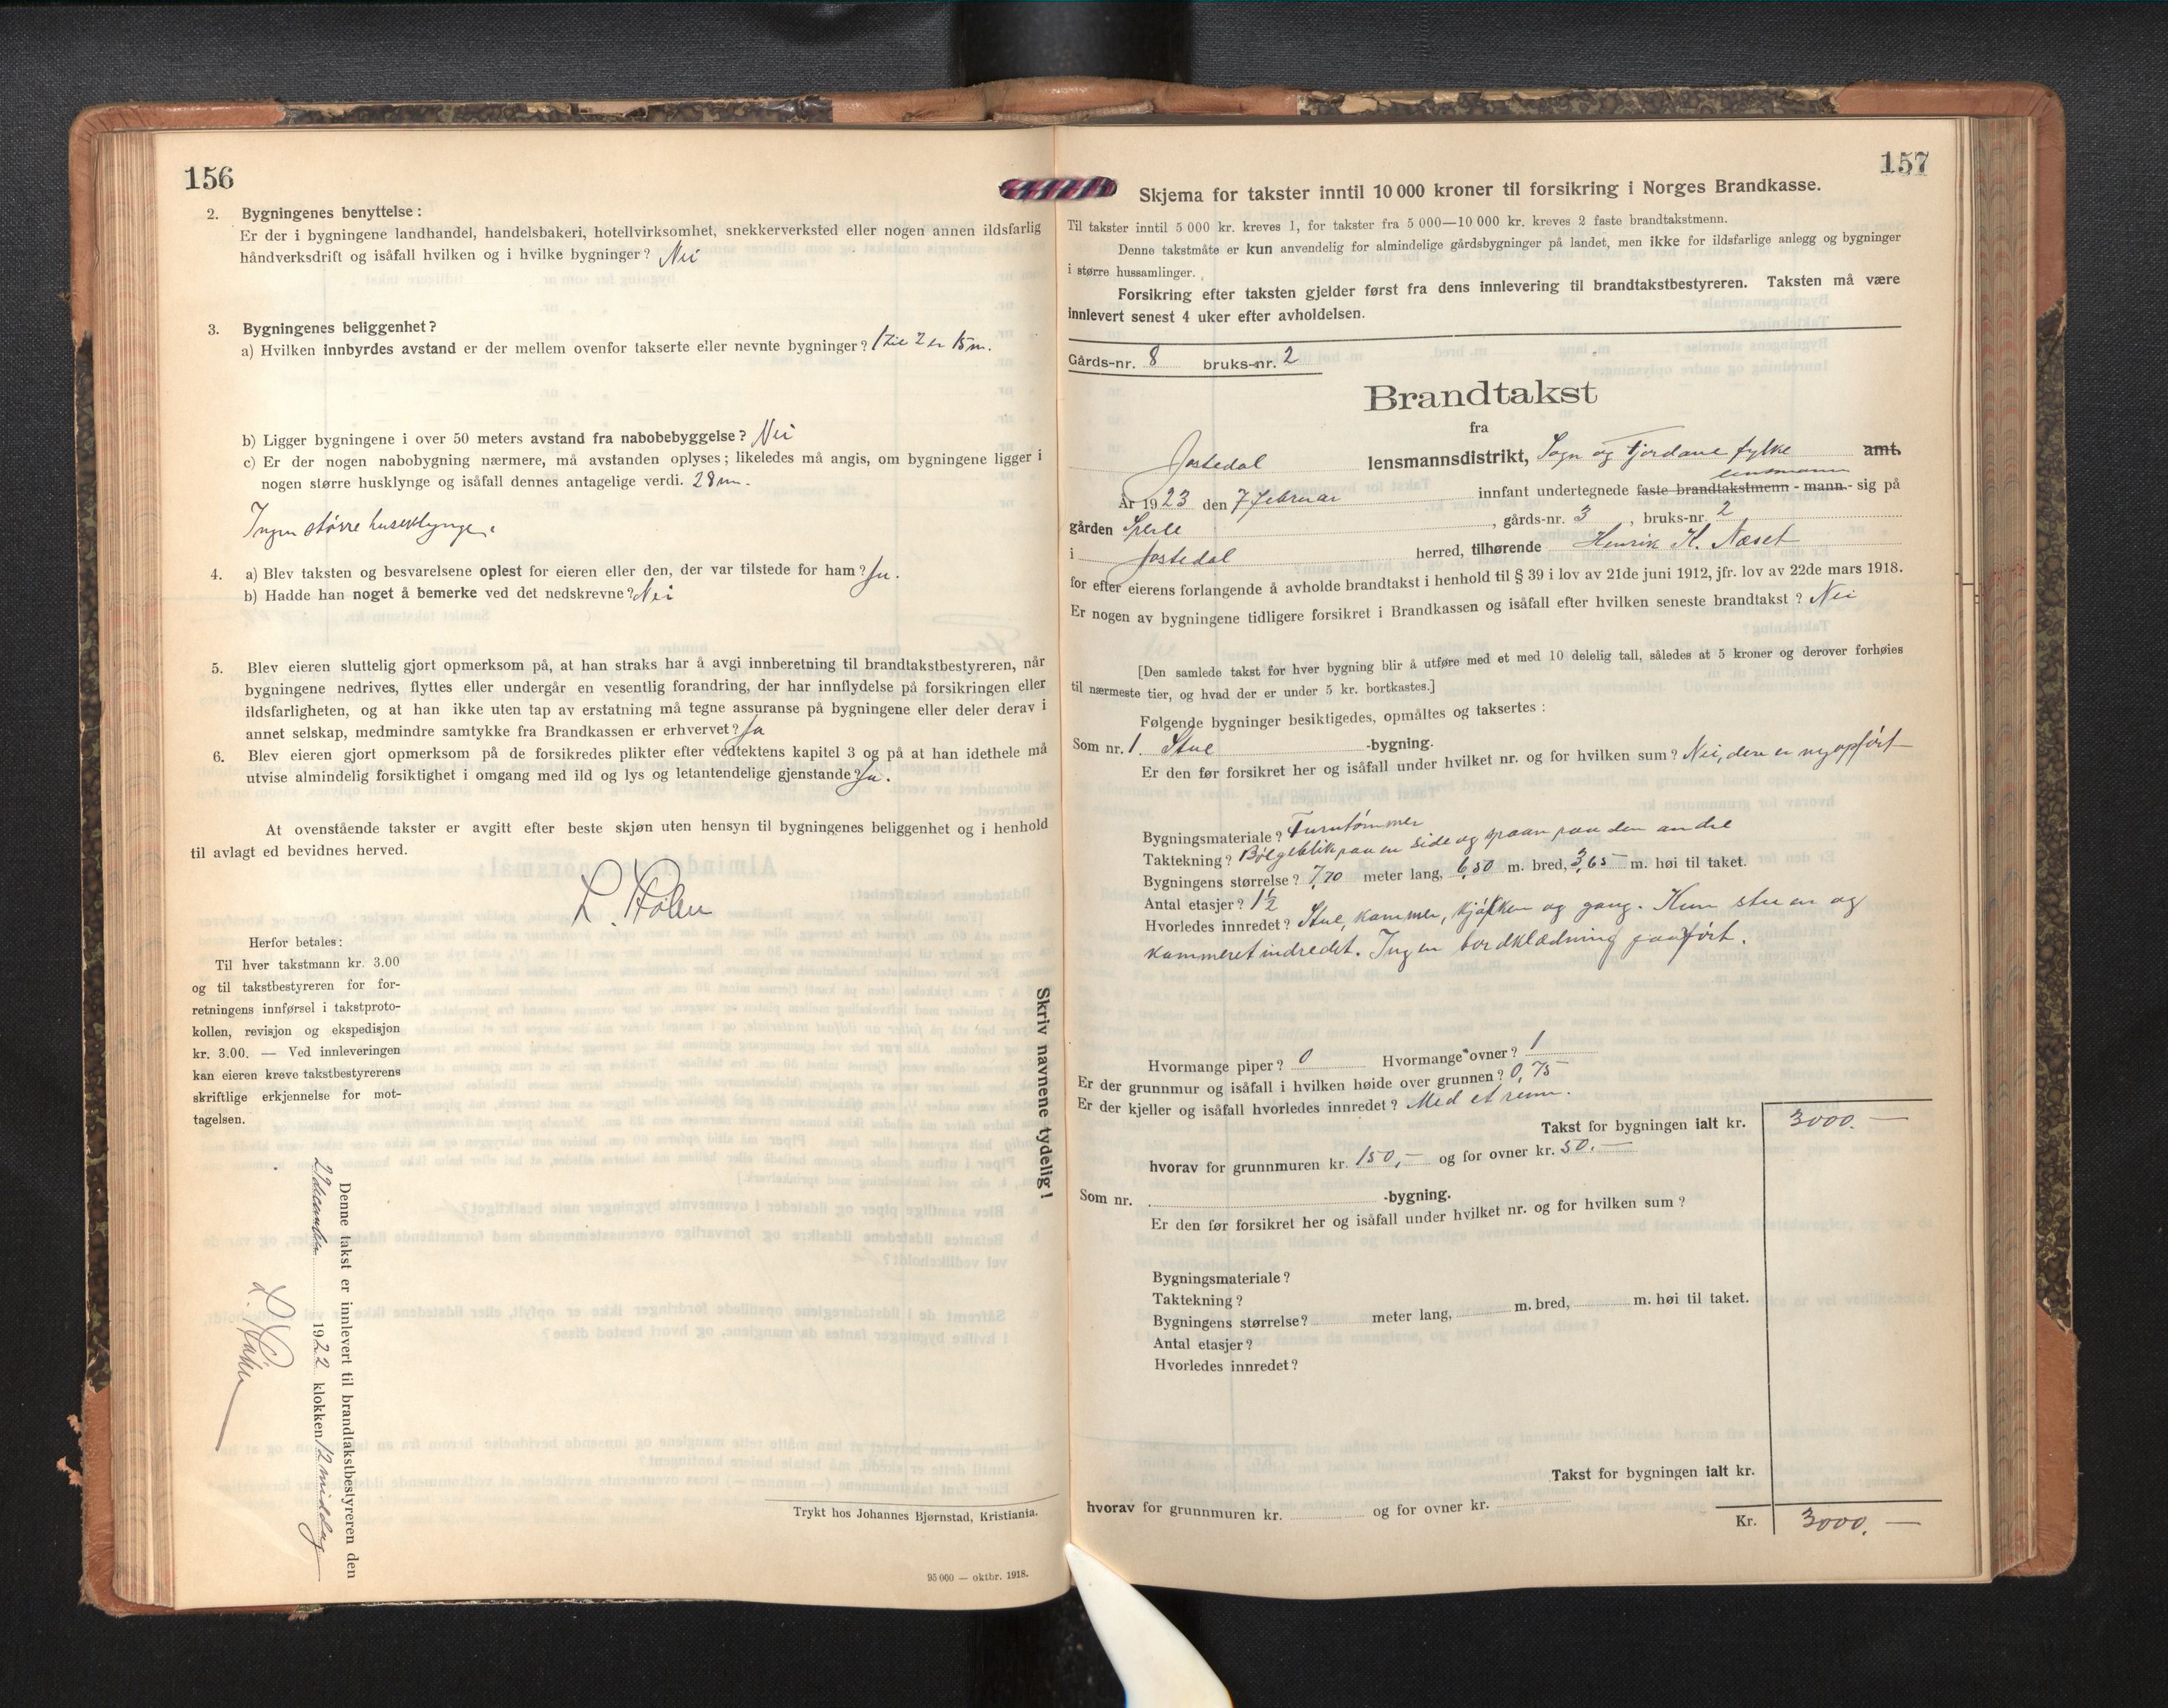 156
2. Bygningenes benyttelse:
Er der i bygningene landhandel, handelsbakeri, hotellvirksomhet, snekkerverksted eller nogen annen ildsfarlig
håndverksdrift og isåfall hvilken og i hvilke bygninger? Nei
3. Bygningenes beliggenhet?
a) Hvilken innbyrdes avstand er der mellem ovenfor takserte eller nevnte bygninger? 1 til 2 er 15 m.
b) Ligger bygningene i over 50 meters avstand fra nabobebyggelse? Nei
c) Er der nogen nabobygning nærmere, må avstanden oplyses; likeledes må angis, om bygningene ligger i
nogen større husklynge og isåfall dennes antagelige verdi. 28 m.
Ingen större huseklynge.
4. a) Blev taksten og besvarelsene oplest for eieren eller den, der var tilstede for ham? Ja.
b) Hadde han noget å bemerke ved det nedskrevne? Nei
5. Blev eieren sluttelig gjort opmerksom på, at han straks har å avgi innberetning til brandtakstbestyreren, når
bygningene nedrives, flyttes eller undergår en vesentlig forandring, der har innflydelse på forsikringen eller
ildsfarligheten, og at han ikke uten tap av erstatning må tegne assuranse på bygningene eller deler derav i
annet selskap, medmindre samtykke fra Brandkassen er erhvervet? Ja
6. Blev eieren gjort opmerksom på de forsikredes plikter efter vedtektens kapitel 3 og på at han idethele må
utvise almindelig forsiktighet i omgang med ild og lys og letantendelige gjenstande? Ja.
At ovenstående takster er avgitt efter beste skjøn uten hensyn til bygningenes beliggenhet og i henhold
til avlagt ed bevidnes herved.
Herfor betales:
Til hver takstmann kr. 3.00
og til takstbestyreren for for-
retningens innførsel i takstproto-
kollen, revisjon og ekspedisjon
kr. 3.00. — Ved innleveringen
kan eieren kreve takstbestyrerens
skriftlige erkjennelse for mot-
tagelsen.
Skriv navnene tydelig!
Denne takst er innlevert til brandtakstbestyreren den
december 1922 klokken 12 middag
Trykt hos Johannes Bjørnstad, Kristiania.
95 000 — oktbr. 1918.
157
Skjema for takster inntil 10 000 kroner til forsikring i Norges Brandkasse.
Til takster inntil 5 000 kr. kreves 1, for takster fra 5 000—10 000 kr. kreves 2 faste brandtakstmenn.
Denne takstmåte er kun anvendelig for almindelige gårdsbygninger på landet, men ikke for ildsfarlige anlegg og bygninger
i større hussamlinger.
Forsikring efter taksten gjelder først fra dens innlevering til brandtakstbestyreren. Taksten må være
innlevert senest 4 uker efter avholdelsen.
Gårds-nr. 8 bruks-nr. 2
Brandtakst
fra
Jostedal lensmannsdistrikt, Sogn og Fjordane fylke amt.
lensmann
År 1923 den 7 februar innfant undertegnede faste brandtakstmenn - mann - sig på
gården Sperle, gårds-nr. 3, bruks-nr. 2
i Jostedal herred, tilhørende Henrik K. Næset
for efter eierens forlangende å avholde brandtakst i henhold til § 39 i lov av 21de juni 1912, jfr. lov av 22de mars 1918.
Er nogen av bygningene tidligere forsikret i Brandkassen og isåfall efter hvilken seneste brandtakst? Nei
[Den samlede takst for hver bygning blir å utføre med et med 10 delelig tall, således at 5 kroner og derover forhøies
til nærmeste tier, og hvad der er under 5 kr. bortkastes.]
Følgende bygninger besiktigedes, opmåltes og taksertes:
Som nr. 1. Stue -bygning.
Er den før forsikret her og isåfall under hvilket nr. og for hvilken sum? Nei, den er nyopfört
Bygningsmateriale? Furutömmer
Taktekning? Bölgeblik paa en side og spaan paa den andre
Bygningens størrelse? 7,70 meter lang, 6,50 m. bred, 3,65 m. høi til taket.
Antal etasjer? 1½
Hvorledes innredet? Stue, kammer, kjökken og gang. Kun stuen og
kammeret indredet. Ingen bordklædning paafört.
Hvormange piper? 0 Hvormange ovner? 1
Er der grunnmur og isåfall i hvilken høide over grunnen? 0,75
Er der kjeller og isåfall hvorledes innredet? Med et rum.
Takst for bygningen ialt kr. 3000.—
hvorav for grunnmuren kr. 150,- og for ovner kr. 50.—
Som nr. -bygning.
Er den før forsikret her og isåfall under hvilket nr. og for hvilken sum?
Bygningsmateriale?
Taktekning?
Bygningens størrelse? meter lang, m. bred, m. høi til taket.
Antal etasjer?
Hvorledes innredet?
Takst for bygningen ialt kr.
hvorav for grunnmuren kr. og for ovner kr.
Kr. 3000.—